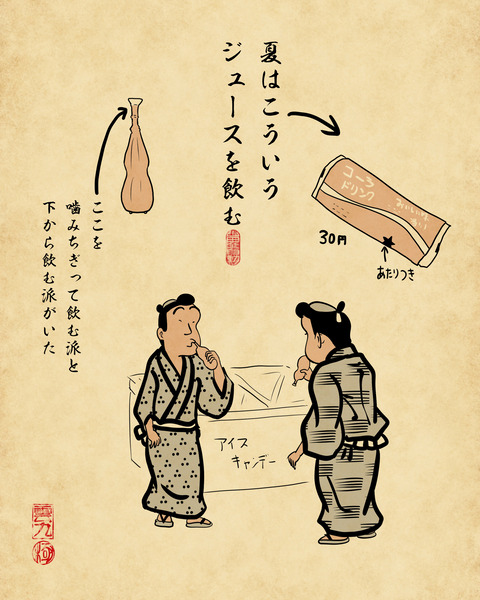 夏はこういう
ジュースを飲む
コーラ
ドリンク
おいしいね
30円
あたりつき
ここを
噛みちぎって飲む派と
下から飲む派がいた
アイス
キャンデー